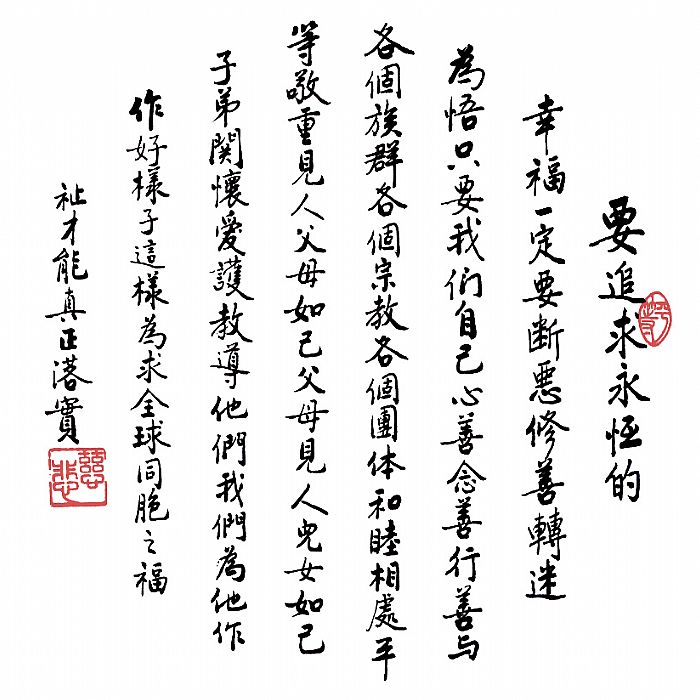 要追求永恒的
幸福一定要断悪修善轉迷
為悟只要我们自己心善念善行善与
各個族群各個宗教各個團体和睦相處平
等敬重見人父母如己父母見人兒女如己
子弟関懷爱護教導他們我們為他作
作好樣子這樣為求全球同胞之福
祉才能真正落實
慈悲